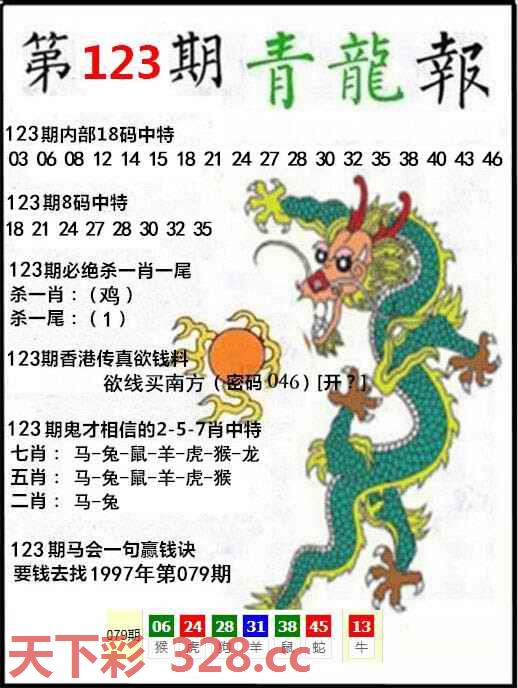 第123期青龍報
123期内部18码中特
03 06 08 12 14 15 18 21 24 27 28 30 32 35 38 40 43 46
123期8码中特
18 21 24 27 28 30 32 35
123期必绝杀一肖一尾
杀一肖：（鸡）
杀一尾：（1）
123期香港传真欲钱料
欲线买南方（密码046）[开？]
123期鬼才相信的2-5-7肖中特
七肖： 马-兔-鼠-羊-虎-猴-龙
五肖： 马-兔-鼠-羊-虎-猴
二肖： 马-兔
123期马会一句赢钱诀
要钱去找1997年第079期
079期 06 24 28 31 38 45 13
猴 虎 狗 羊 鼠 蛇 牛
天下彩 328.cc